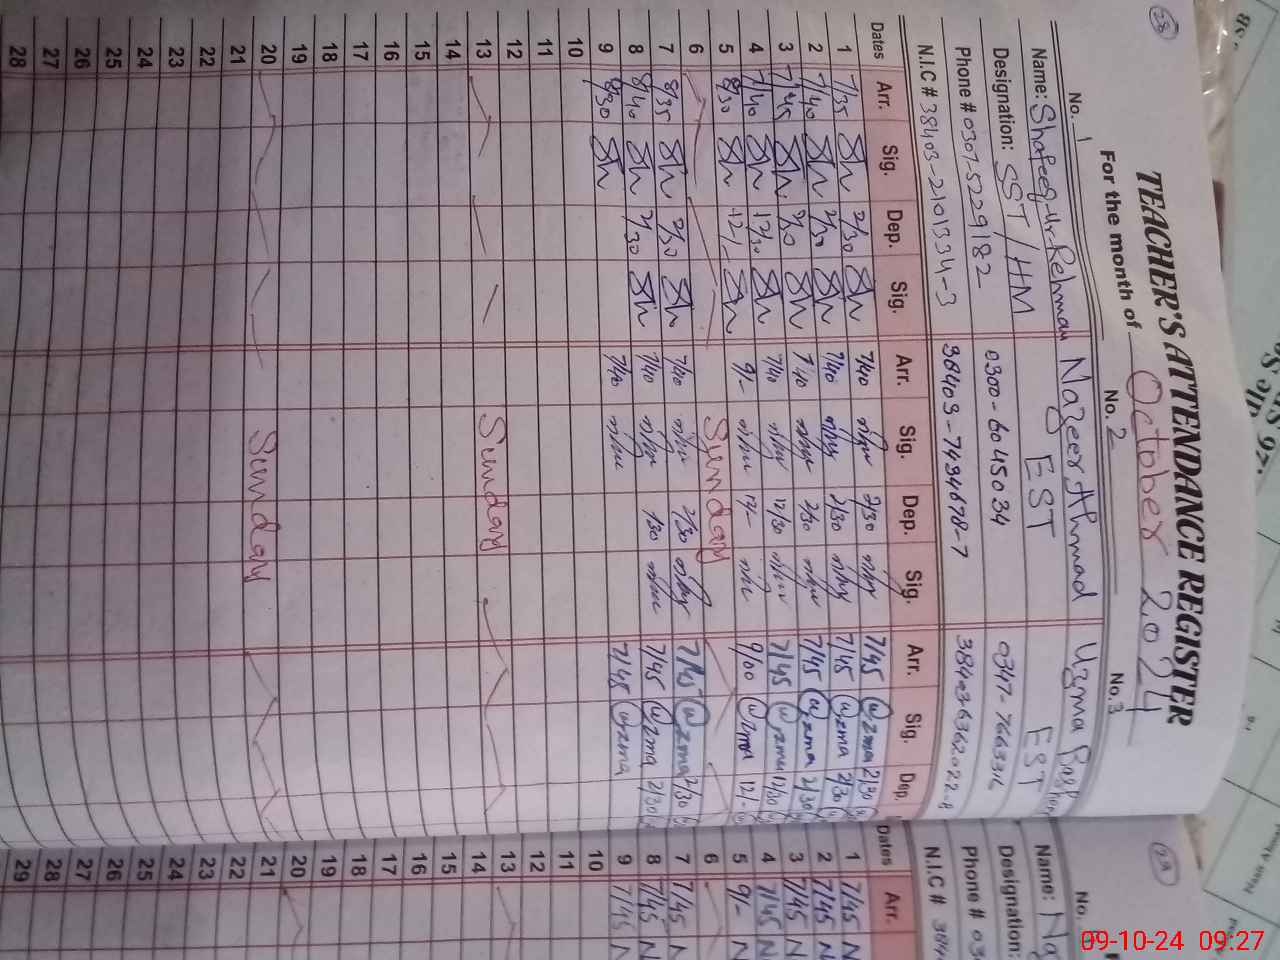 28
TEACHER'S ATTENDANCE REGISTER
For the month of October 2024
No. 1 No. 2 No. 3
Name: Shafeeq-Ur-Rehman Nazeer Ahmad Uzma
Designation: SST/HM EST EST
Phone # 0307-5229182 0300-6045034
N.I.C # 38403-2101334-3 38403-7494678-7
Dates Arr. Sig. Dep. Sig. Arr. Sig. Dep. Sig. Arr. Sig. Dep.
1 7/35 Sh 2/30 Sh 7/40 2/30 7/45 Uzma 2/30
2 7/40 Sh 2/30 Sh 7/40 2/30 7/45 Uzma 2/30
3 7/45 Sh 2/30 Sh 7/40 2/30 7/45 Uzma 2/30
4 7/40 Sh 12/30 Sh 7/40 12/30 7/45 Uzma 12/30
5 8/30 Sh 12/- Sh 9/- 12/- 9/00 Uzma 12/-
6 Sunday
7 8/35 Sh 2/30 Sh 7/40 2/30 7/45 Uzma 2/30
8 8/40 Sh 2/30 Sh 7/40 2/30 7/45 Uzma 2/30
9 8/30 Sh 7/40 7/45 Uzma
10
11
12
13 Sunday
14
15
16
17
18
19
20 Sunday
21
22
23
24
25
26
27
28
No.
Name: Na
Designation:
Phone # 03
N.I.C # 384
Dates Arr.
1 7/45 N
2 7/45 N
3 7/45 N
4 7/45 N
5 9/- N
6
7 7/45 N
8 7/45 N
9 7/45 N
10
11
12
13
14
15
16
17
18
19
20
21
22
23
24
25
26
27
28
29
09-10-24 09:27